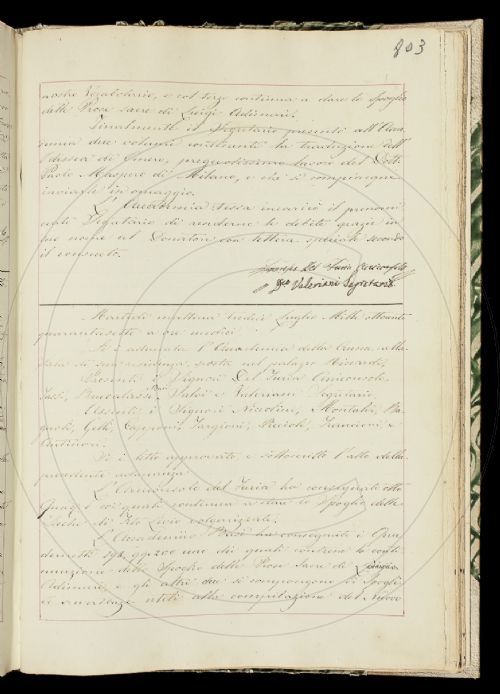 803
nostro Vocabolario, e col terzo continua a dare lo Spoglio
delle Prose sacre di Luigi Adimari.
Finalmente il Segretario presentò all'Acca-
demia due volumi contenenti la traduzione dell'
Odissea di Omero, pregevolissimo lavoro del Dott.
Paolo Maspero di Milano, e che si compiacque
inviarle in omaggio.
L'Accademia stessa incaricò il prenomi-
nato Segretario di renderne le debite grazie in
suo nome al Donatore con lettera speciale secondo
il consueto.
Del Furia Arciconsolo
Valeriani Segretario
Martedì mattina tredici Luglio Mille ottocento
quarantasette a ore undici
Si è adunata l'Accademia della Crusca nella
Sala di sua residenza posta nel palazzo Riccardi,
Presenti i Signori Del Furia Arciconsolo
Tassi, Brucalassi, Salvi e Valeriani Segretario
Assenti i Signori Niccolini, Montalvi, Ba-
gnoli, Gelli, Capponi, Targioni, Puccioli, Francioni e
Antinori.
Si è letto approvato e sottoscritto l'atto della
precedente adunanza.
L'Arciconsolo del Furia ha consegnati otto
Quad. coi quali continua a dare lo Spoglio delle
Deche di Tito Livio volgarizzate.
L'Accademico ha consegnato i Qua-
demetti 198, 99, 200 uno dei quali contiene la conti-
nuazione dello Spoglio delle Prose Sacre di Luigi
Adimari, e gli altri due si compongono di Spogli
e avvertenze utili alla compilazione del Nuovo